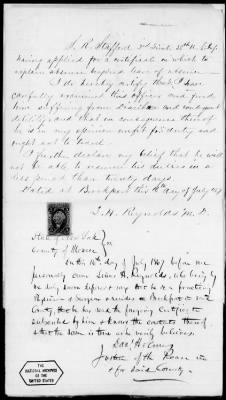 S. R. Stafford 2nd Lieut. 28th U.S. Inf.
having applied for a certificate on which to
explain absence beyond leave of absence
I do hereby certify that I have
carefully examined this officer and find
him suffering from Diarrhea and consequent
debility and that in consequence thereof
he is in my opinion unfit for duty and
ought not to travel.
I further declare my belief that he will
not be able to resume his duties in a
less period than twenty days.
Dated at Brockport this 16th day of July 1867
S. H. Reynolds M. D.
State of New York
County of Monroe
On this 16th day of July 1867 before me
personally came H. Reynolds, who being by
me duly sworn deposes & says that he is a practicing
Physician & Surgeon & resides in Brockport in said
County, that he has read the foregoing Certificate
subscribed by him & knows the contents thereof
that the same is true as he verily believes.
Justice of the Peace in
& for said County.
THE
NATIONAL ARCHIVES
OF THE
UNITED STATES